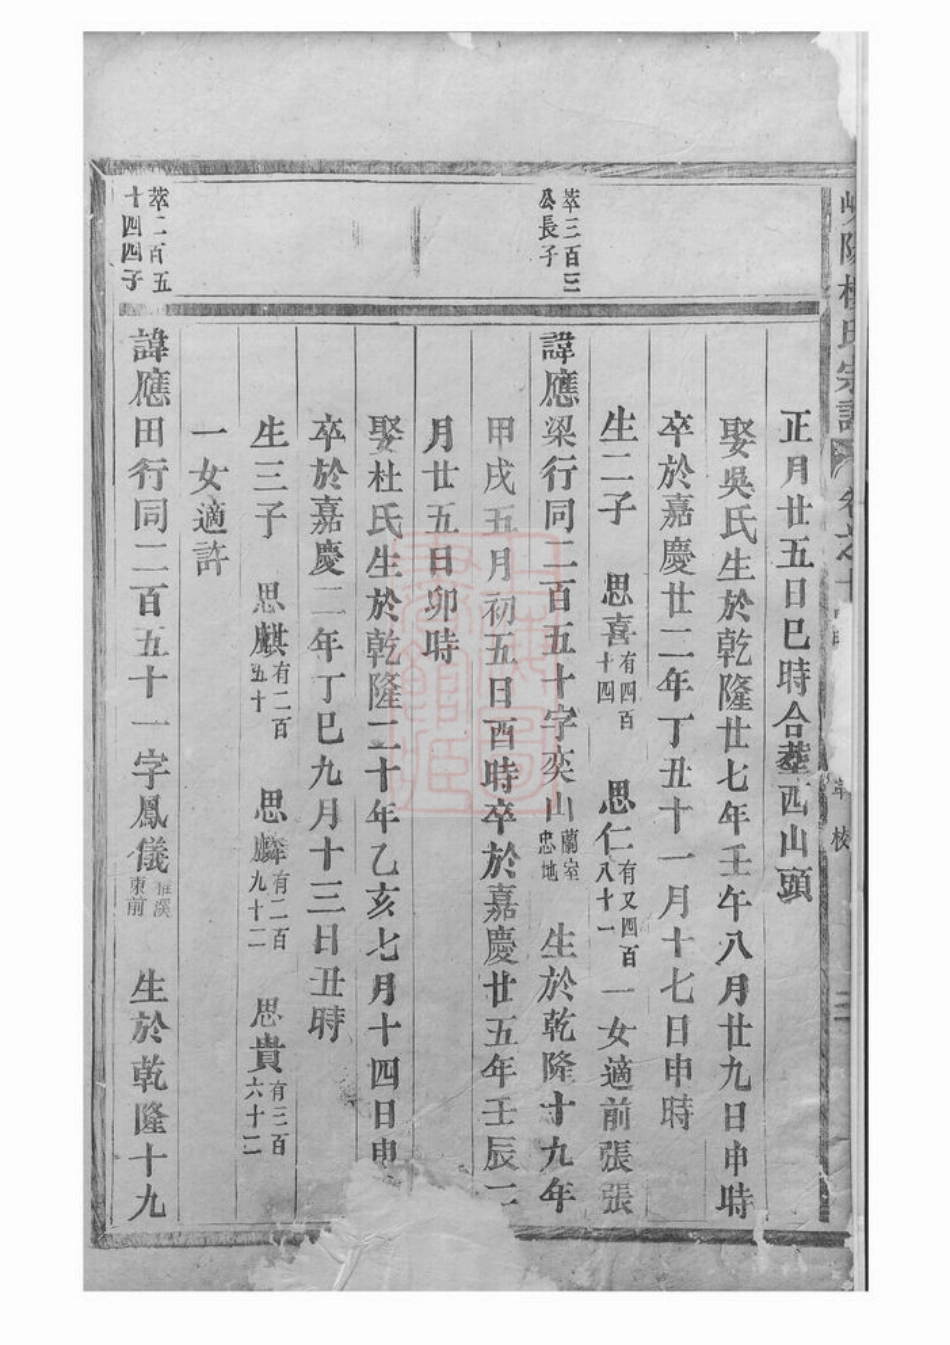 陽 氏宗譜
校
正月廿五日巳時合塟西山頭
娶吳氏生於乾隆廿七年壬午八月廿九日申時
卒於嘉慶廿二年丁丑十一月十七日申時
生二子 思喜有四百十四 思仁有又四百八十一 一女適前張張
萃三百三
公長子
諱應梁行同二百五十字奕山蘭室忠地 生於乾隆十九年
甲戌五月初五日酉時卒於嘉慶廿五年壬辰二
月廿五日卯時
娶杜氏生於乾隆二十年乙亥七月十四日申
卒於嘉慶二年丁巳九月十三日丑時
生三子 思麒有二百五十 思麟有二百九十二 思貴有三百六十二
一女適許
萃二百五
十四四子
諱應田行同二百五十一字鳳儀溪東前 生於乾隆十九